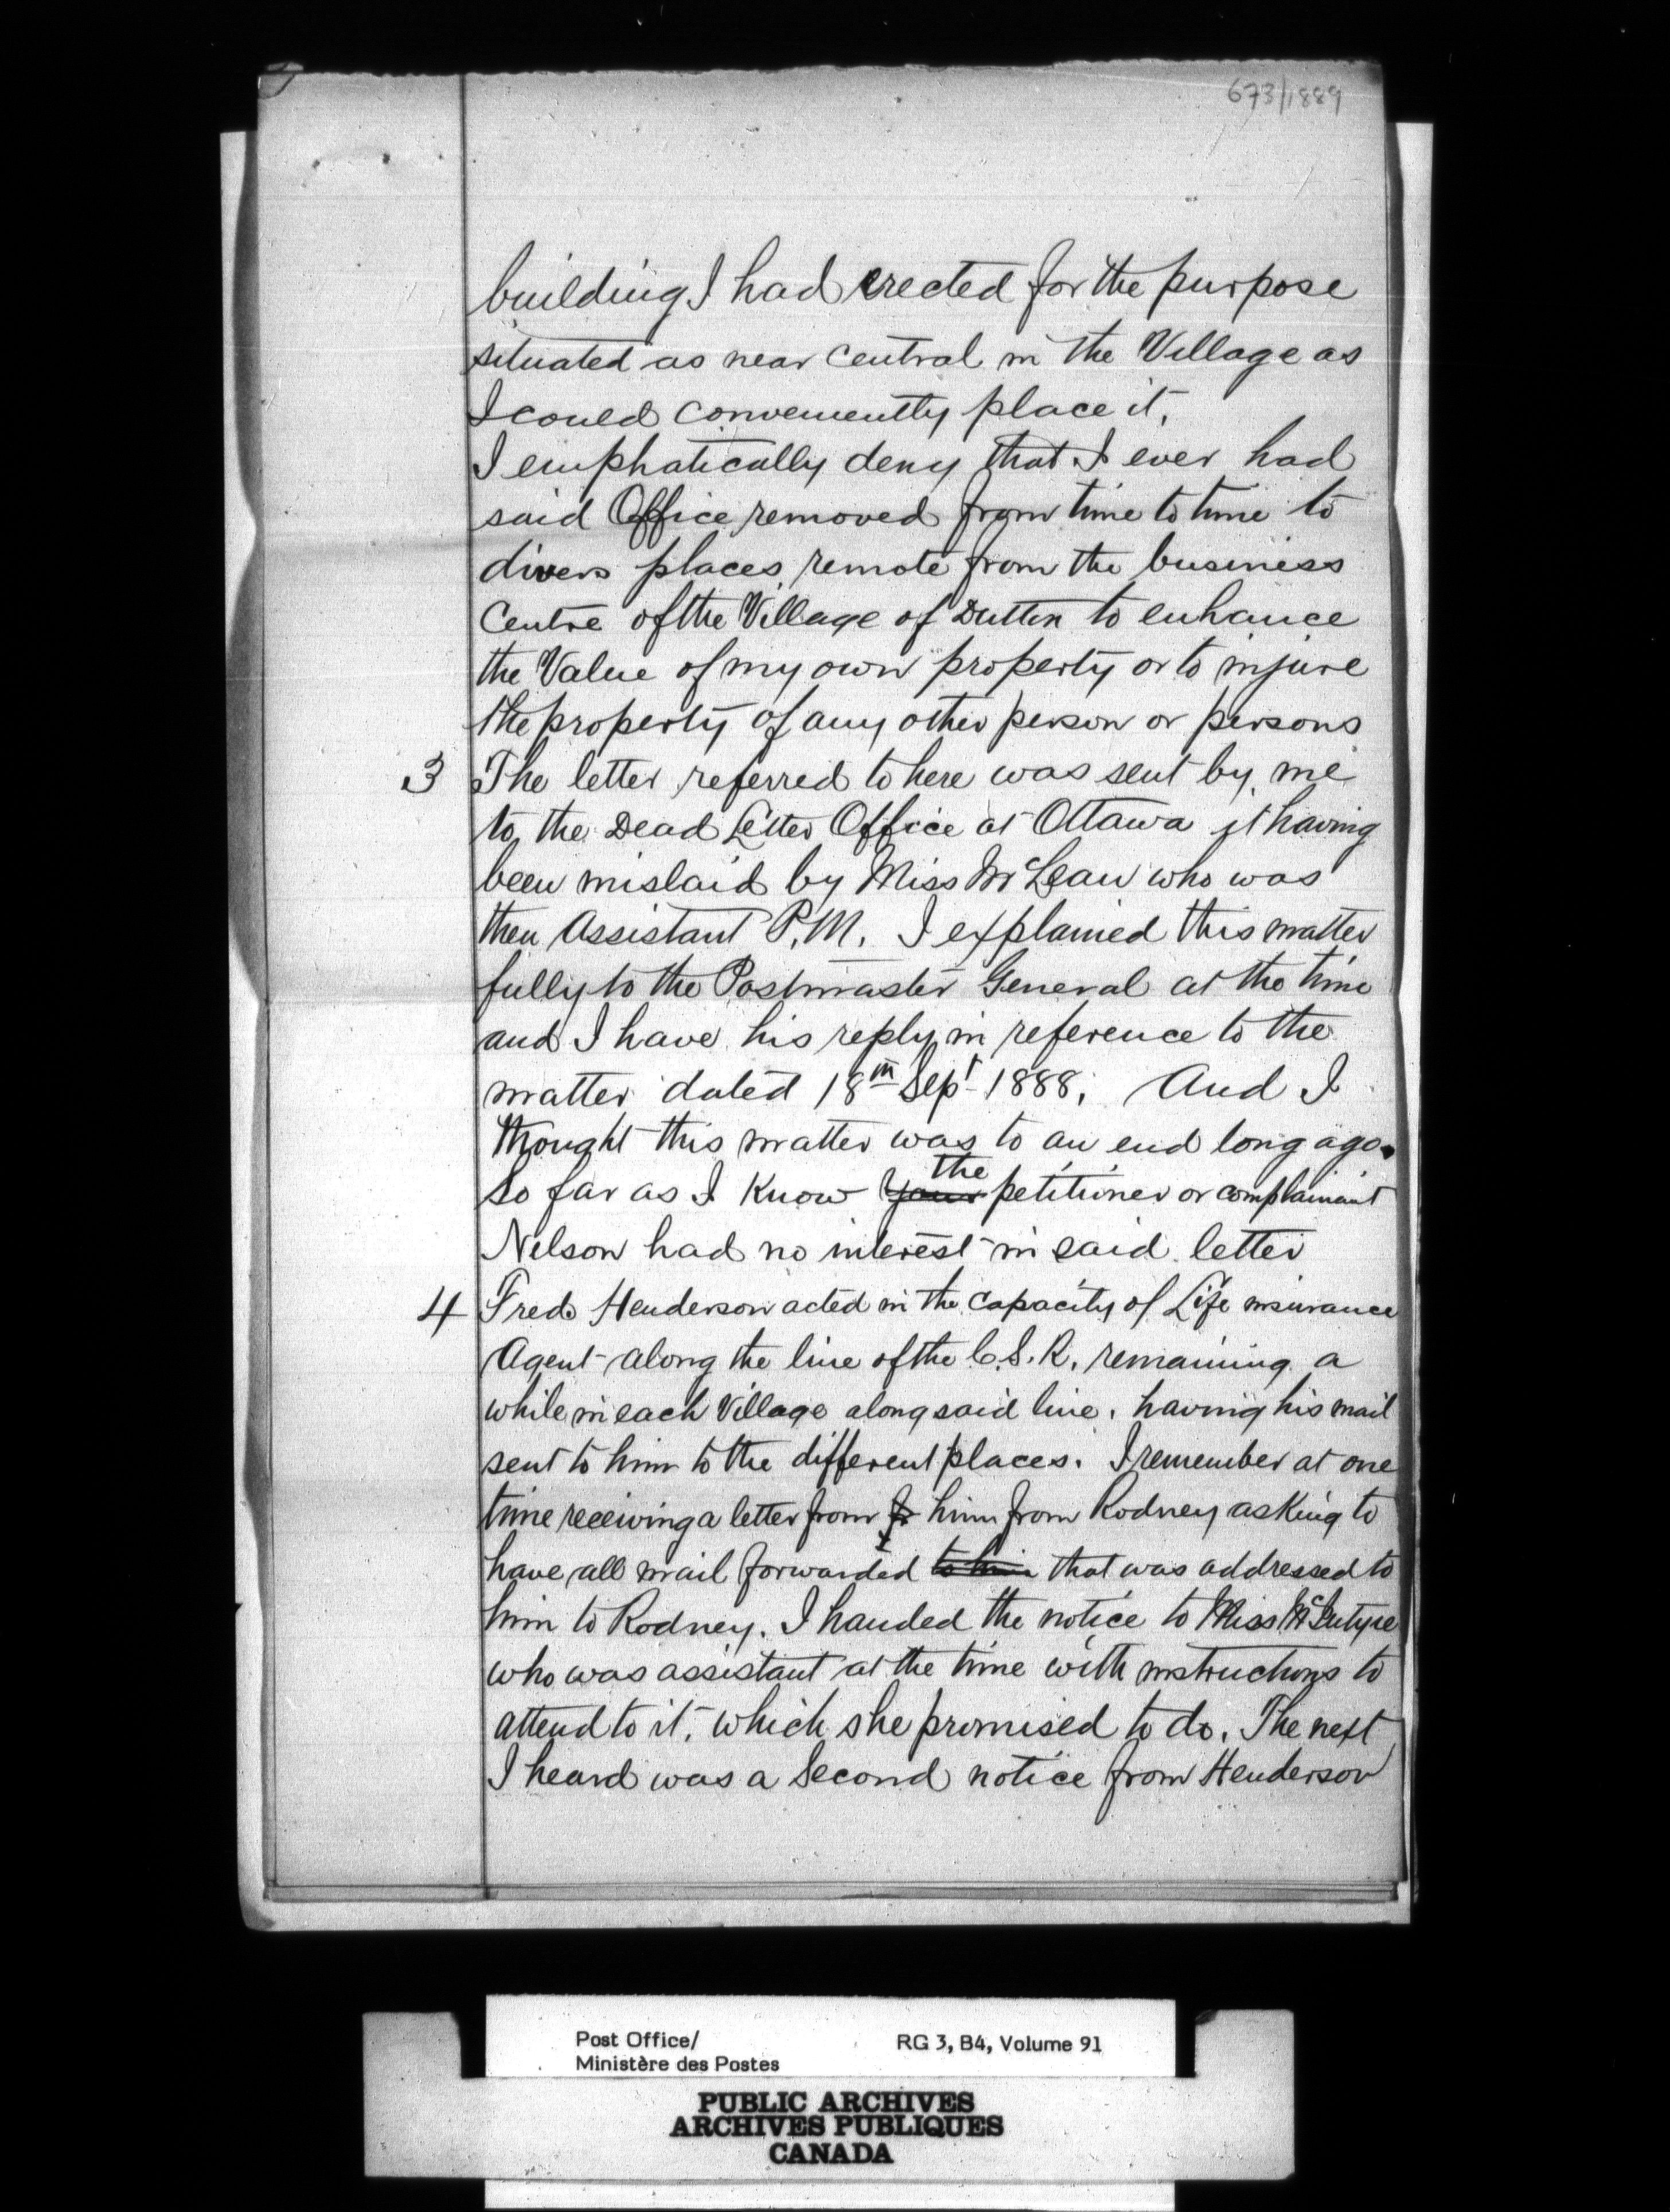 673/1889
building I had erected for the purpose
situated as near central in the Village as
I could conveniently place it.
I emphatically deny that I ever had
said Office removed from time to time to
divers places remote from the business
Centre of the Village of Dutton to enhance
the Value of my own property or to injure
the property of any other person or persons
3 The letter referred to here was sent by me
to the Dead Letter Office at Ottawa it having
been mislaid by Miss McLean who was
then Assistant P.M. I explained this matter
fully to the Postmaster General at the time
and I have his reply in reference to the
matter dated 18th Sept 1888. And I
thought this matter was to an end long ago.
So far as I know your the petitioner or complainant
Nelson had no interest in said letter
4 Fred Henderson acted in the capacity of Life insurance
Agent along the line of the C.S.R. remaining a
while in each Village along said line. having his mail
sent to him to the different places. I remember at one
time receiving a letter from fr him from Rodney asking to
have all mail forwarded to him that was addressed to
him to Rodney. I handed the notice to Miss McIntyre
who was assistant at the time with instructions to
attend to it, which she promised to do. The next
I heard was a Second notice from Henderson
Post Office/ RG 3, B4, Volume 91
Ministère des Postes
PUBLIC ARCHIVES
ARCHIVES PUBLIQUES
CANADA